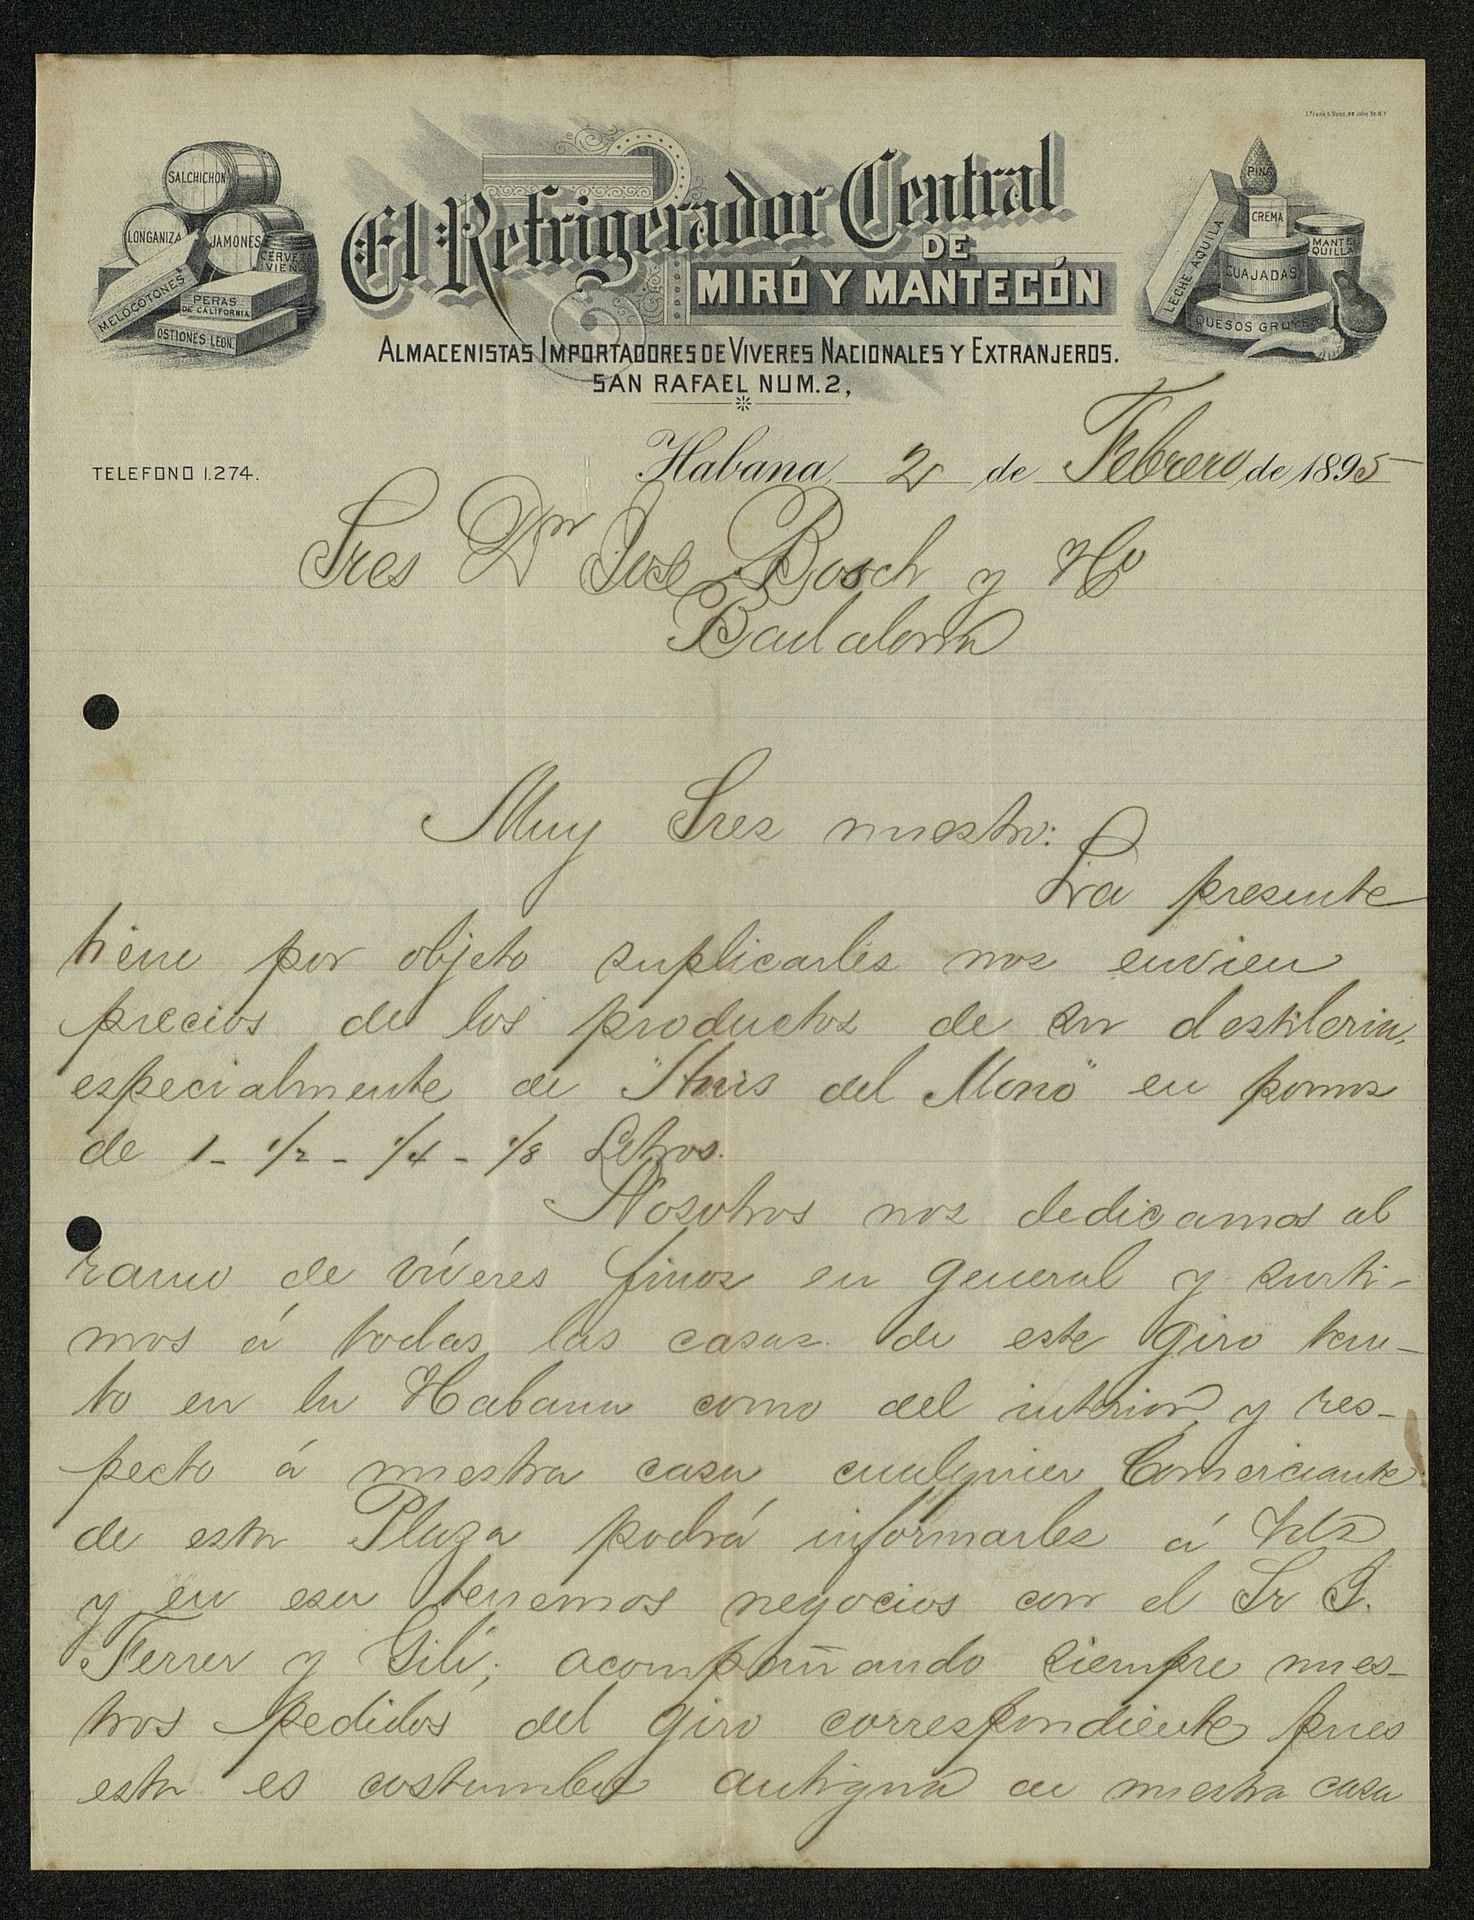 J. Frank & Sons, 88 John St. N.Y.
SALCHICHON
LONGANIZA
JAMONES
CERVEZA
VIENA
MELOCOTONES
PERAS
DE CALIFORNIA
OSTIONES LEON
El Refrigerador Central
DE
MIRÓ Y MANTECÓN
PIÑA
CREMA
LECHE AQUILA
MANTE
QUILLA
CUAJADAS
QUESOS GRUYER
ALMACENISTAS IMPORTADORES DE VIVERES NACIONALES Y EXTRANJEROS.
SAN RAFAEL NUM. 2,
TELEFONO 1.274.
Habana, 2 de Febrero de 1895
Sres Dn José Bosch y Ho
Badalona
Muy Sres nuestro:
La presente
tiene por objeto suplicarles nos envien
precios de los productos de su destileria,
especialmente de "Anis del Mono" en pomos
de 1 - 1/2 - 1/4 - 1/8 Litros.
Nosotros nos dedicamos al
ramo de víveres finos en general y surti-
mos á todas las casas de este giro tan-
to en la Habana como del interior, y res-
pecto á nuestra casa cualquier Comerciante
de esta Plaza podrá informarles á Vds
y en esa tenemos negocios con el Sr J.
Ferrer y Gili; acompañando siempre nues-
tros pedidos del giro correspondiente pues
esta es costumbre antigua de nuestra casa